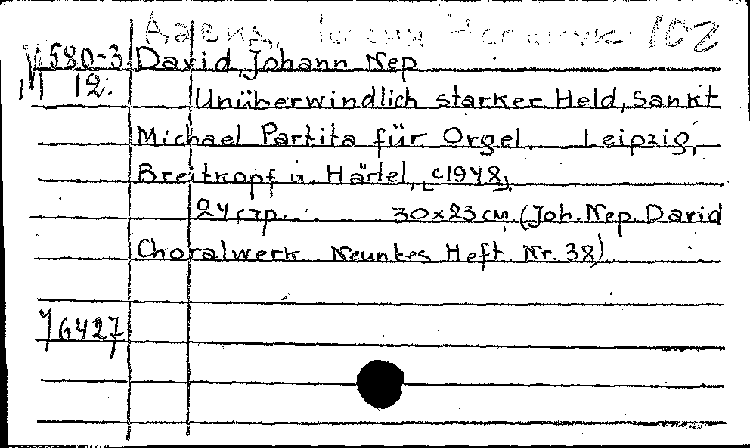 Давид, Иоганн 102
М 580-3 David Johann Nep
12. Unüberwindlich starker Held, Sankt
Michael Partita für Orgel. Leipzig,
Breitkopf u. Härtel, [c1948].
24 стр. 30x23 см. (Joh. Nep. David
Choralwerk Neuntes Heft Nr. 38)
6427